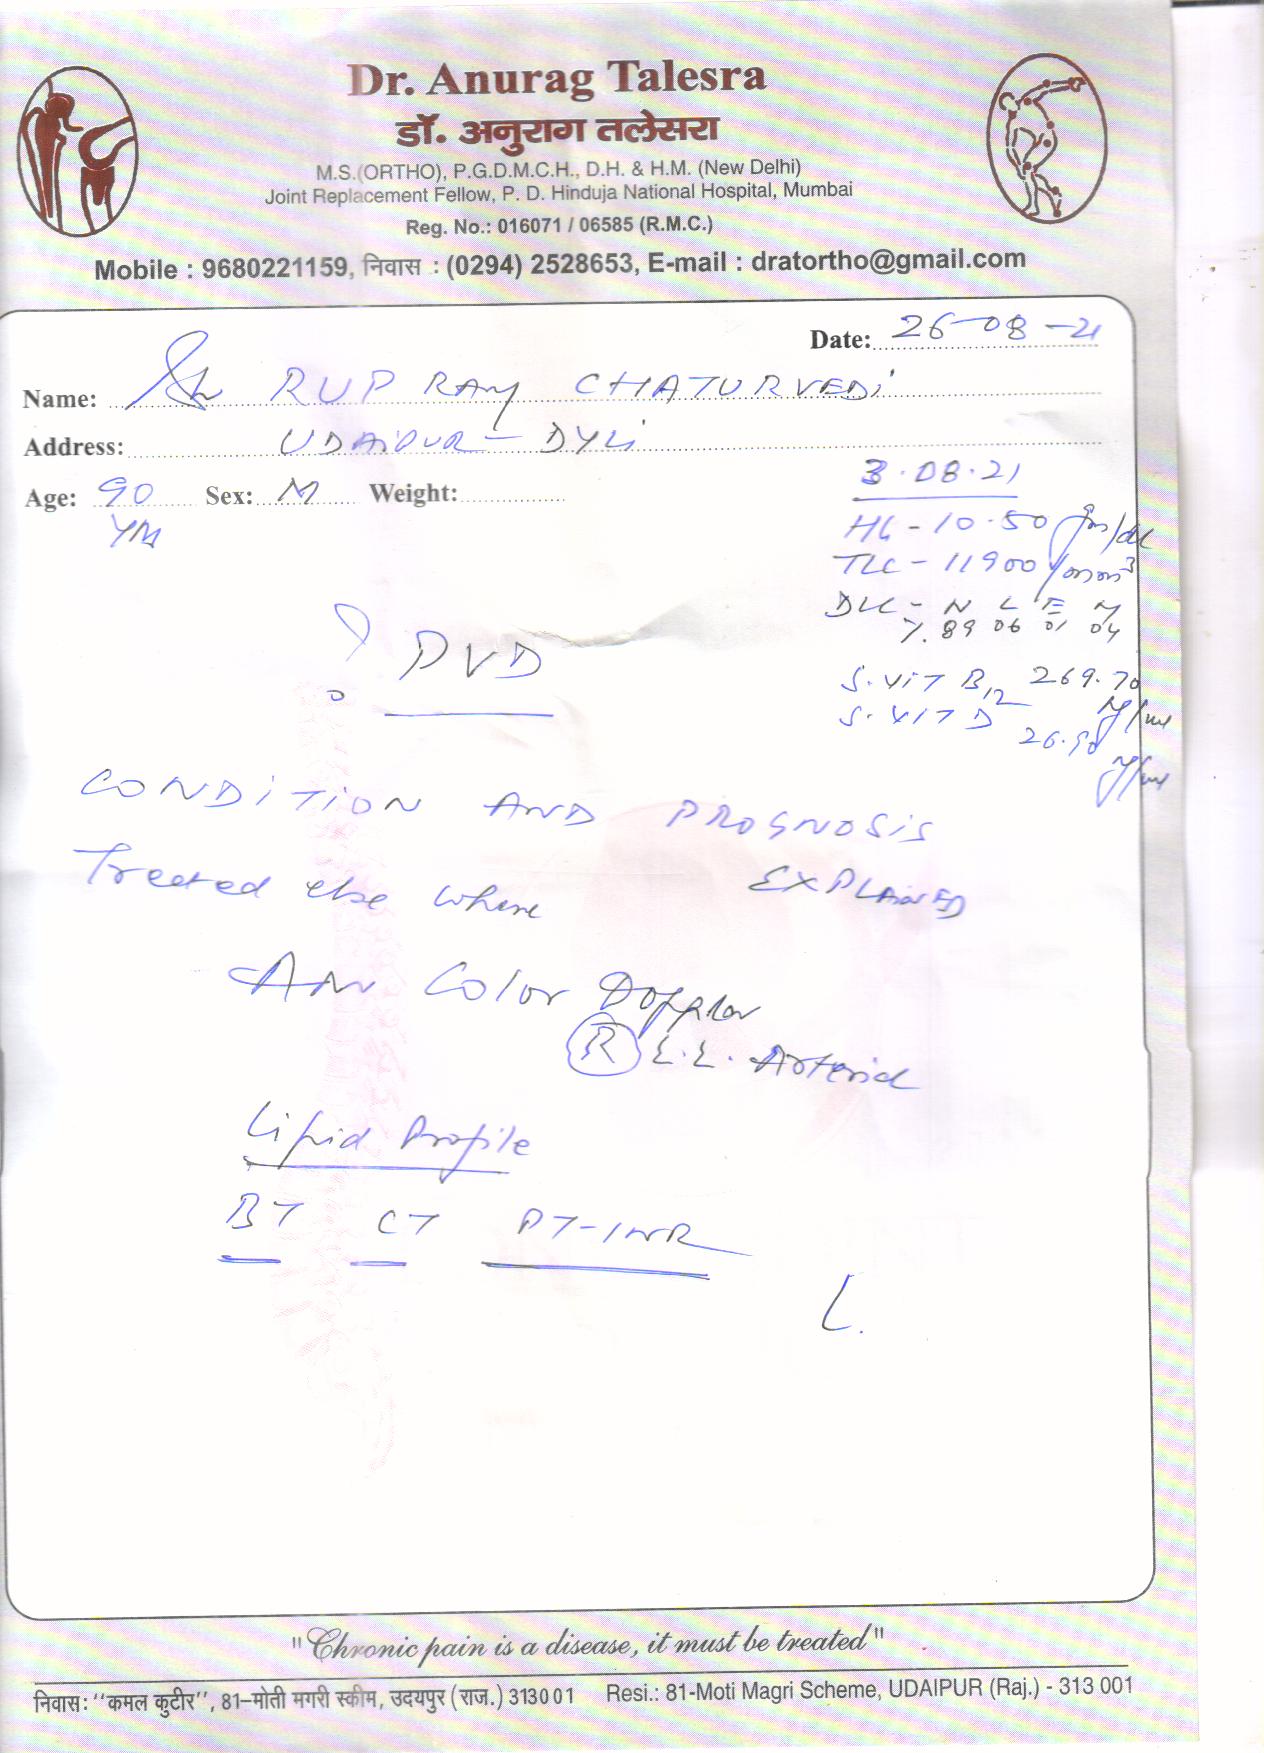 Dr. Anurag Talesra
डॉ. अनुराग तलेसरा
M.S.(ORTHO), P.G.D.M.C.H., D.H. & H.M. (New Delhi)
Joint Replacement Fellow, P. D. Hinduja National Hospital, Mumbai
Reg. No.: 016071 / 06585 (R.M.C.)
Mobile : 9680221159, निवास : (0294) 2528653, E-mail : dratortho@gmail.com
Date: 26-08-21
Name: Sh RUP RAM CHATURVEDI
Address: UDAIPUR -
Age: 90 Sex: M Weight:
3.08.21
Hb - 10.50 gm/dl
TLC - 11900/mm3
DLC - N L E M
%. 89 06 01 04
? PVD
S. VIT B12 269.70
S. VIT D 26.90
CONDITION AND PROGNOSIS
EXPLAINED
Treated else where
Color Doppler
R L.L. Arterial
Lipid Profile
BT CT PT-INR
"Chronic pain is a disease, it must be treated"
निवास: "कमल कुटीर", 81–मोती मगरी स्कीम, उदयपुर (राज.) 313001 Resi.: 81-Moti Magri Scheme, UDAIPUR (Raj.) - 313 001